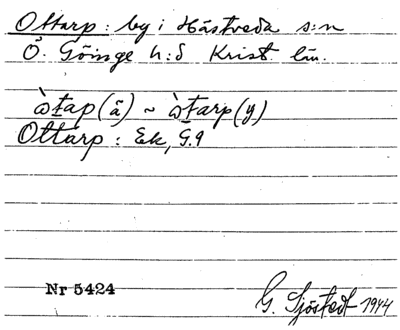 Ottarp : by i Hästveda s:n
Ö. Göinge h:d Krist. län.
ὼtap (ä) ~ ὼtarp (y)
Ottarp : Ek, G.9
Nr 5424
G. Sjöstedt 1944